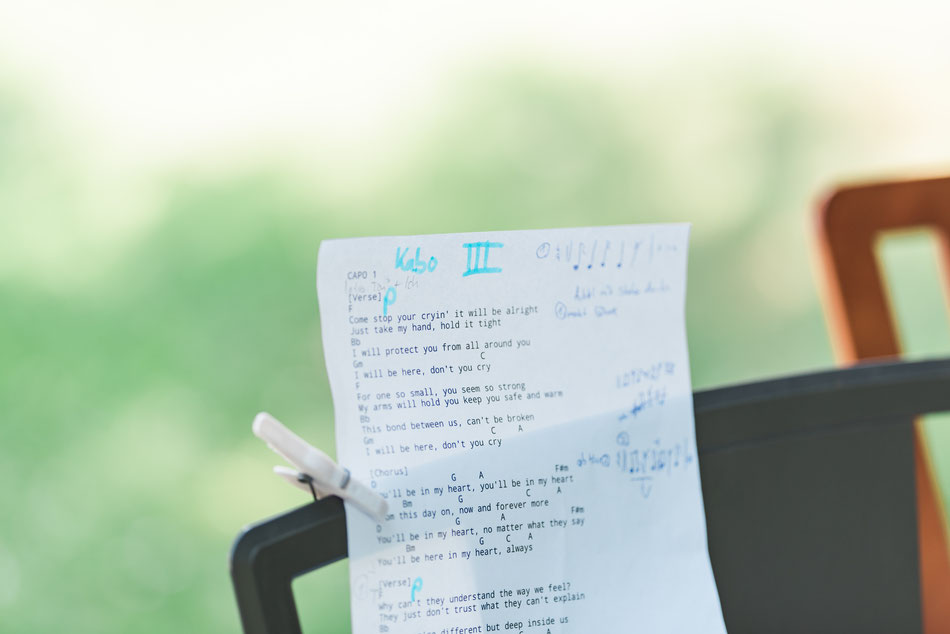 Kabo III
CAPO 1
[Verse] p
F
Come stop your cryin' it will be alright
Just take my hand, hold it tight
Bb
I will protect you from all around you
Gm C
I will be here, don't you cry
F
For one so small, you seem so strong
My arms will hold you keep you safe and warm
Bb
This bond between us, can't be broken
Gm C A
I will be here, don't you cry
[Chorus]
D G A F#m
ou'll be in my heart, you'll be in my heart
Bm G C A
om this day on, now and forever more
D G A F#m
You'll be in my heart, no matter what they say
Bm G C A
You'll be here in my heart, always
[Verse] p
F
Why can't they understand the way we feel?
They just don't trust what they can't explain
Bb
different but deep inside us
C A